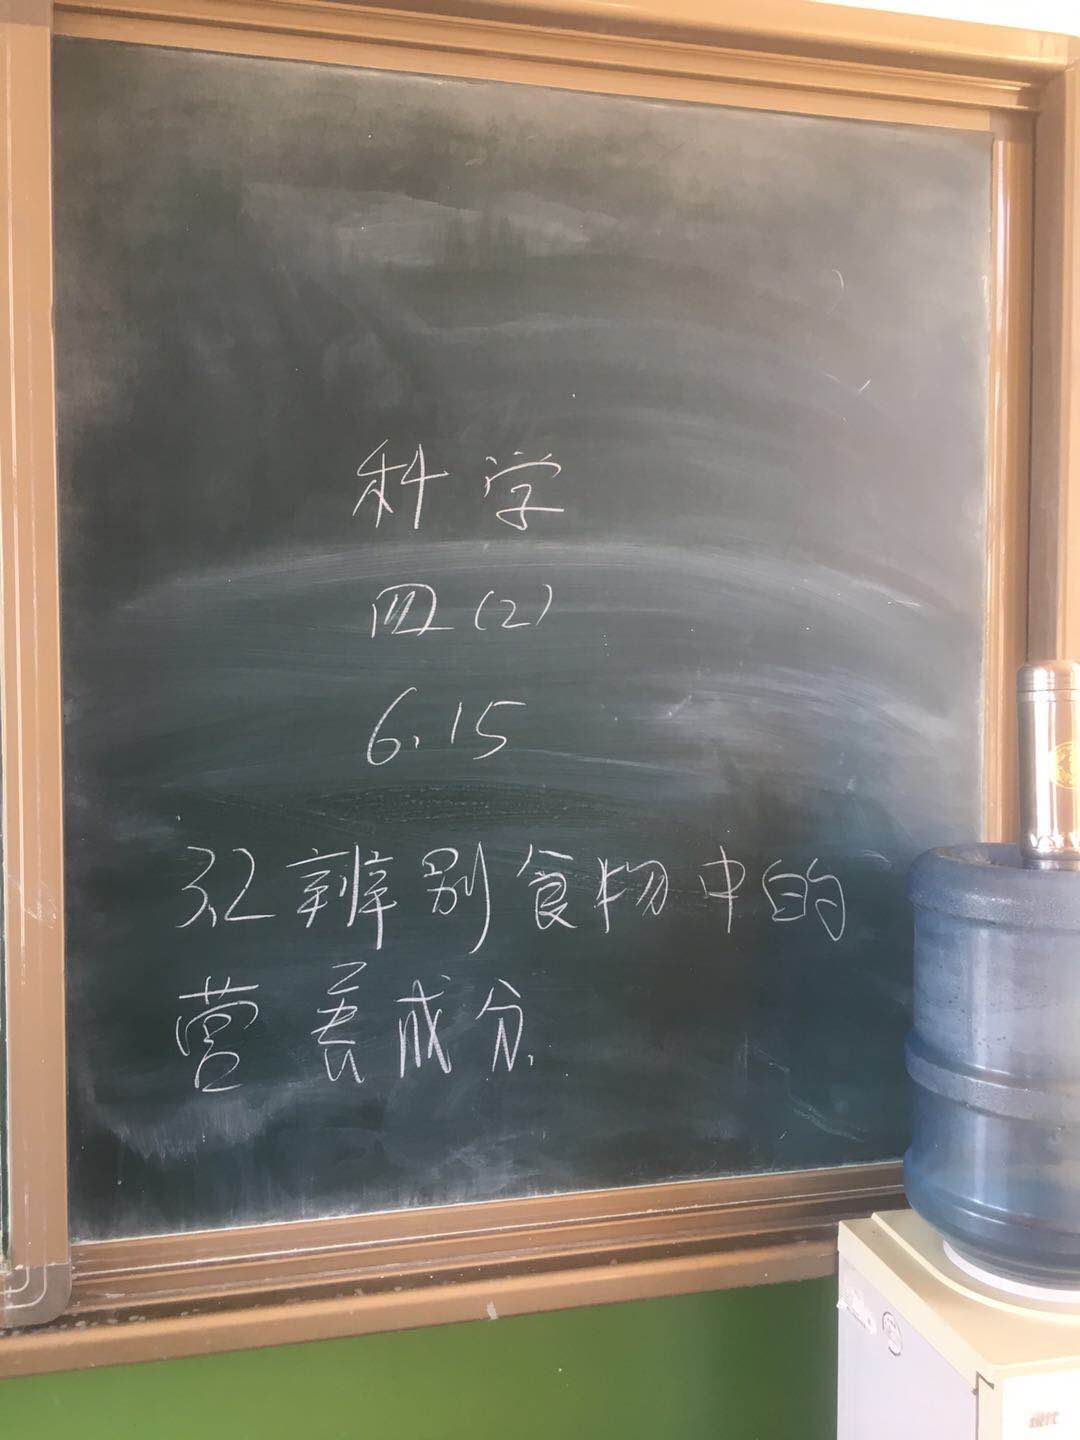 科学
四(2)
6.15
3.2辨别食物中的
营养成分.